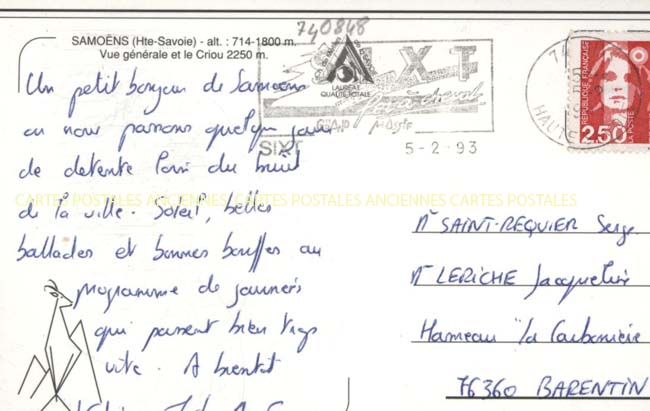 740848
SAMOËNS (Hte-Savoie) - alt. : 714-1800 m.
Vue générale et le Criou 2250 m.
LAURÉAT
QUALITÉ TOTALE
SIXT
GRAND MASSIF
SIXT
5-2-93
HAUTE
RÉPUBLIQUE FRANÇAISE
2,50
LA POSTE
Un petit bonjour de Samoëns
où nous passons quelques jours
de détente loin du bruit
CARTES POSTALES ANCIENNES CARTES POSTALES ANCIENNES CARTES POSTALES
de la ville. Soleil, belles
ballades et bonnes bouffes au
programme de journées
qui passent bien trop
vite. A bientôt
Mr SAINT-REQUIER Serge
Me LERICHE Jacqueline
Hameau "la Carbonnière
76360 BARENTIN